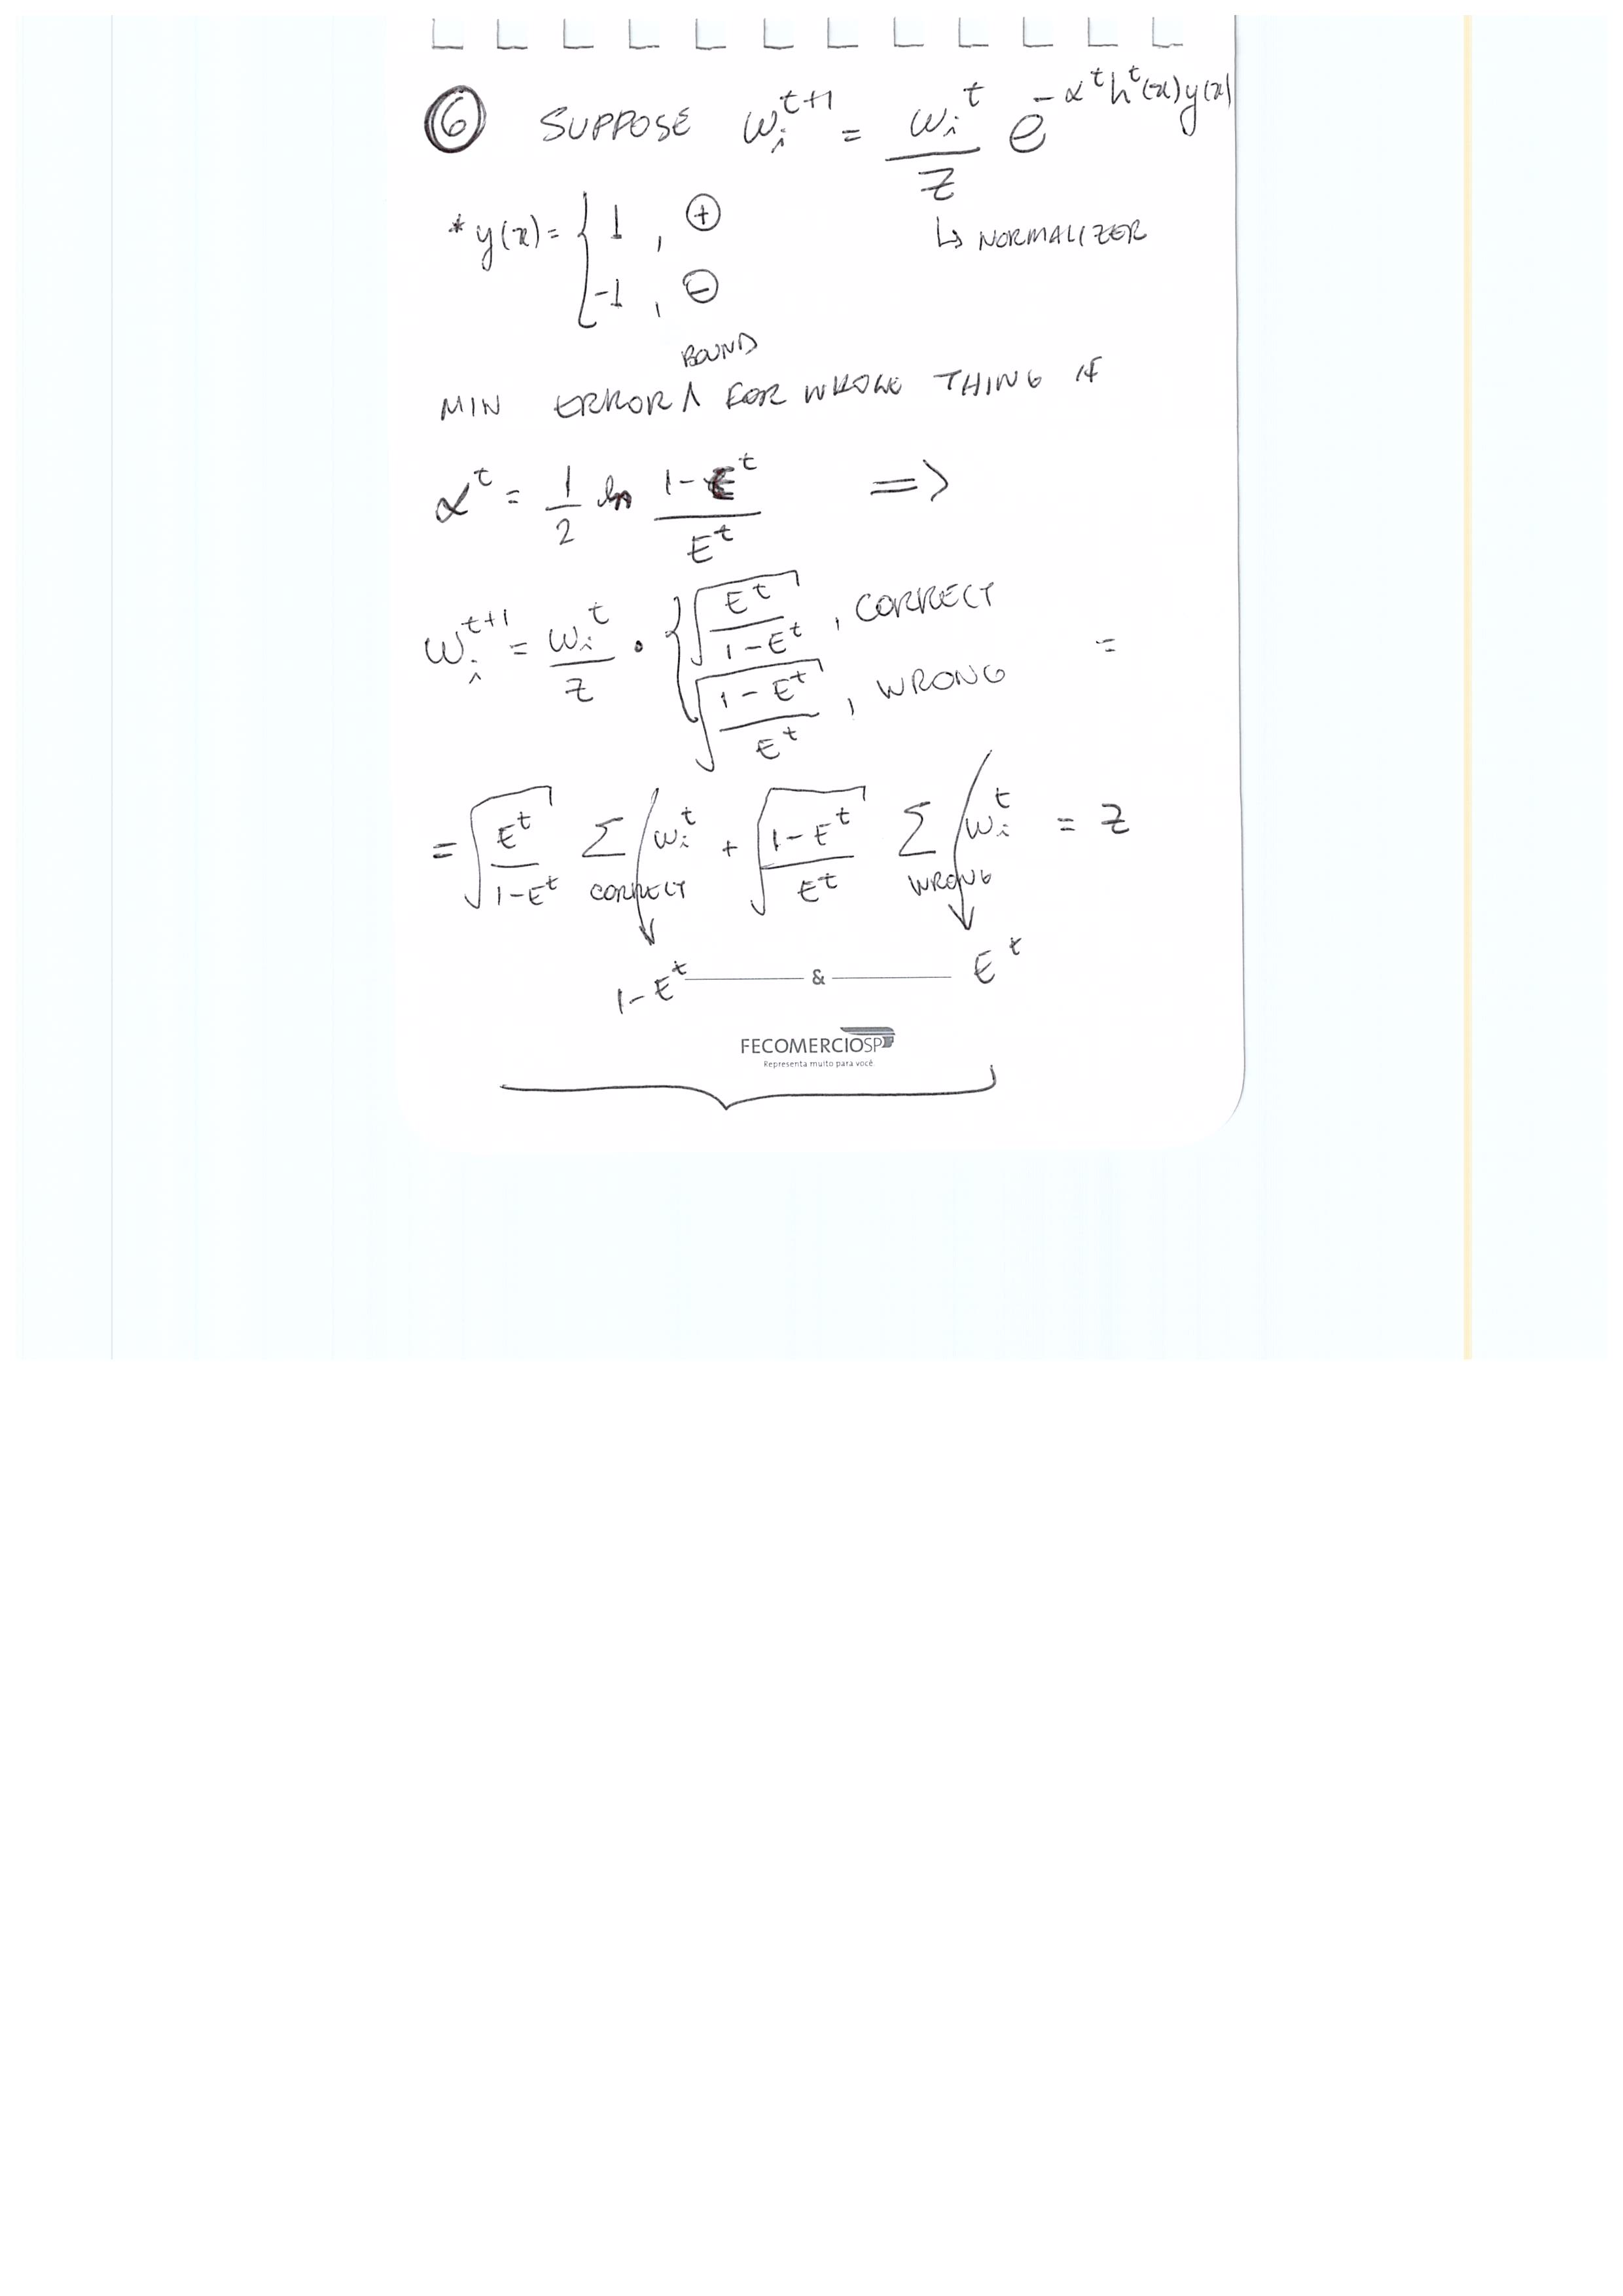 ⑥ SUPPOSE wᵢ^{t+1} = wᵢ^t / z e^{-α^t h^t(x) y(x)}
↳ NORMALIZER
* y(x) = { 1 , ⊕
-1 , ⊖
BOUND
MIN ERROR ∧ FOR WHOLE THING IF
α^t = 1/2 ln (1-E^t)/E^t =>
wᵢ^{t+1} = wᵢ^t / z • { √(E^t/(1-E^t)) , CORRECT
√((1-E^t)/E^t) , WRONG =
= √(E^t/(1-E^t)) Σ wᵢ^t + √((1-E^t)/E^t) Σ wᵢ^t = z
CORRECT WRONG
1-E^t & E^t
FECOMERCIOSP
Representa muito para você.